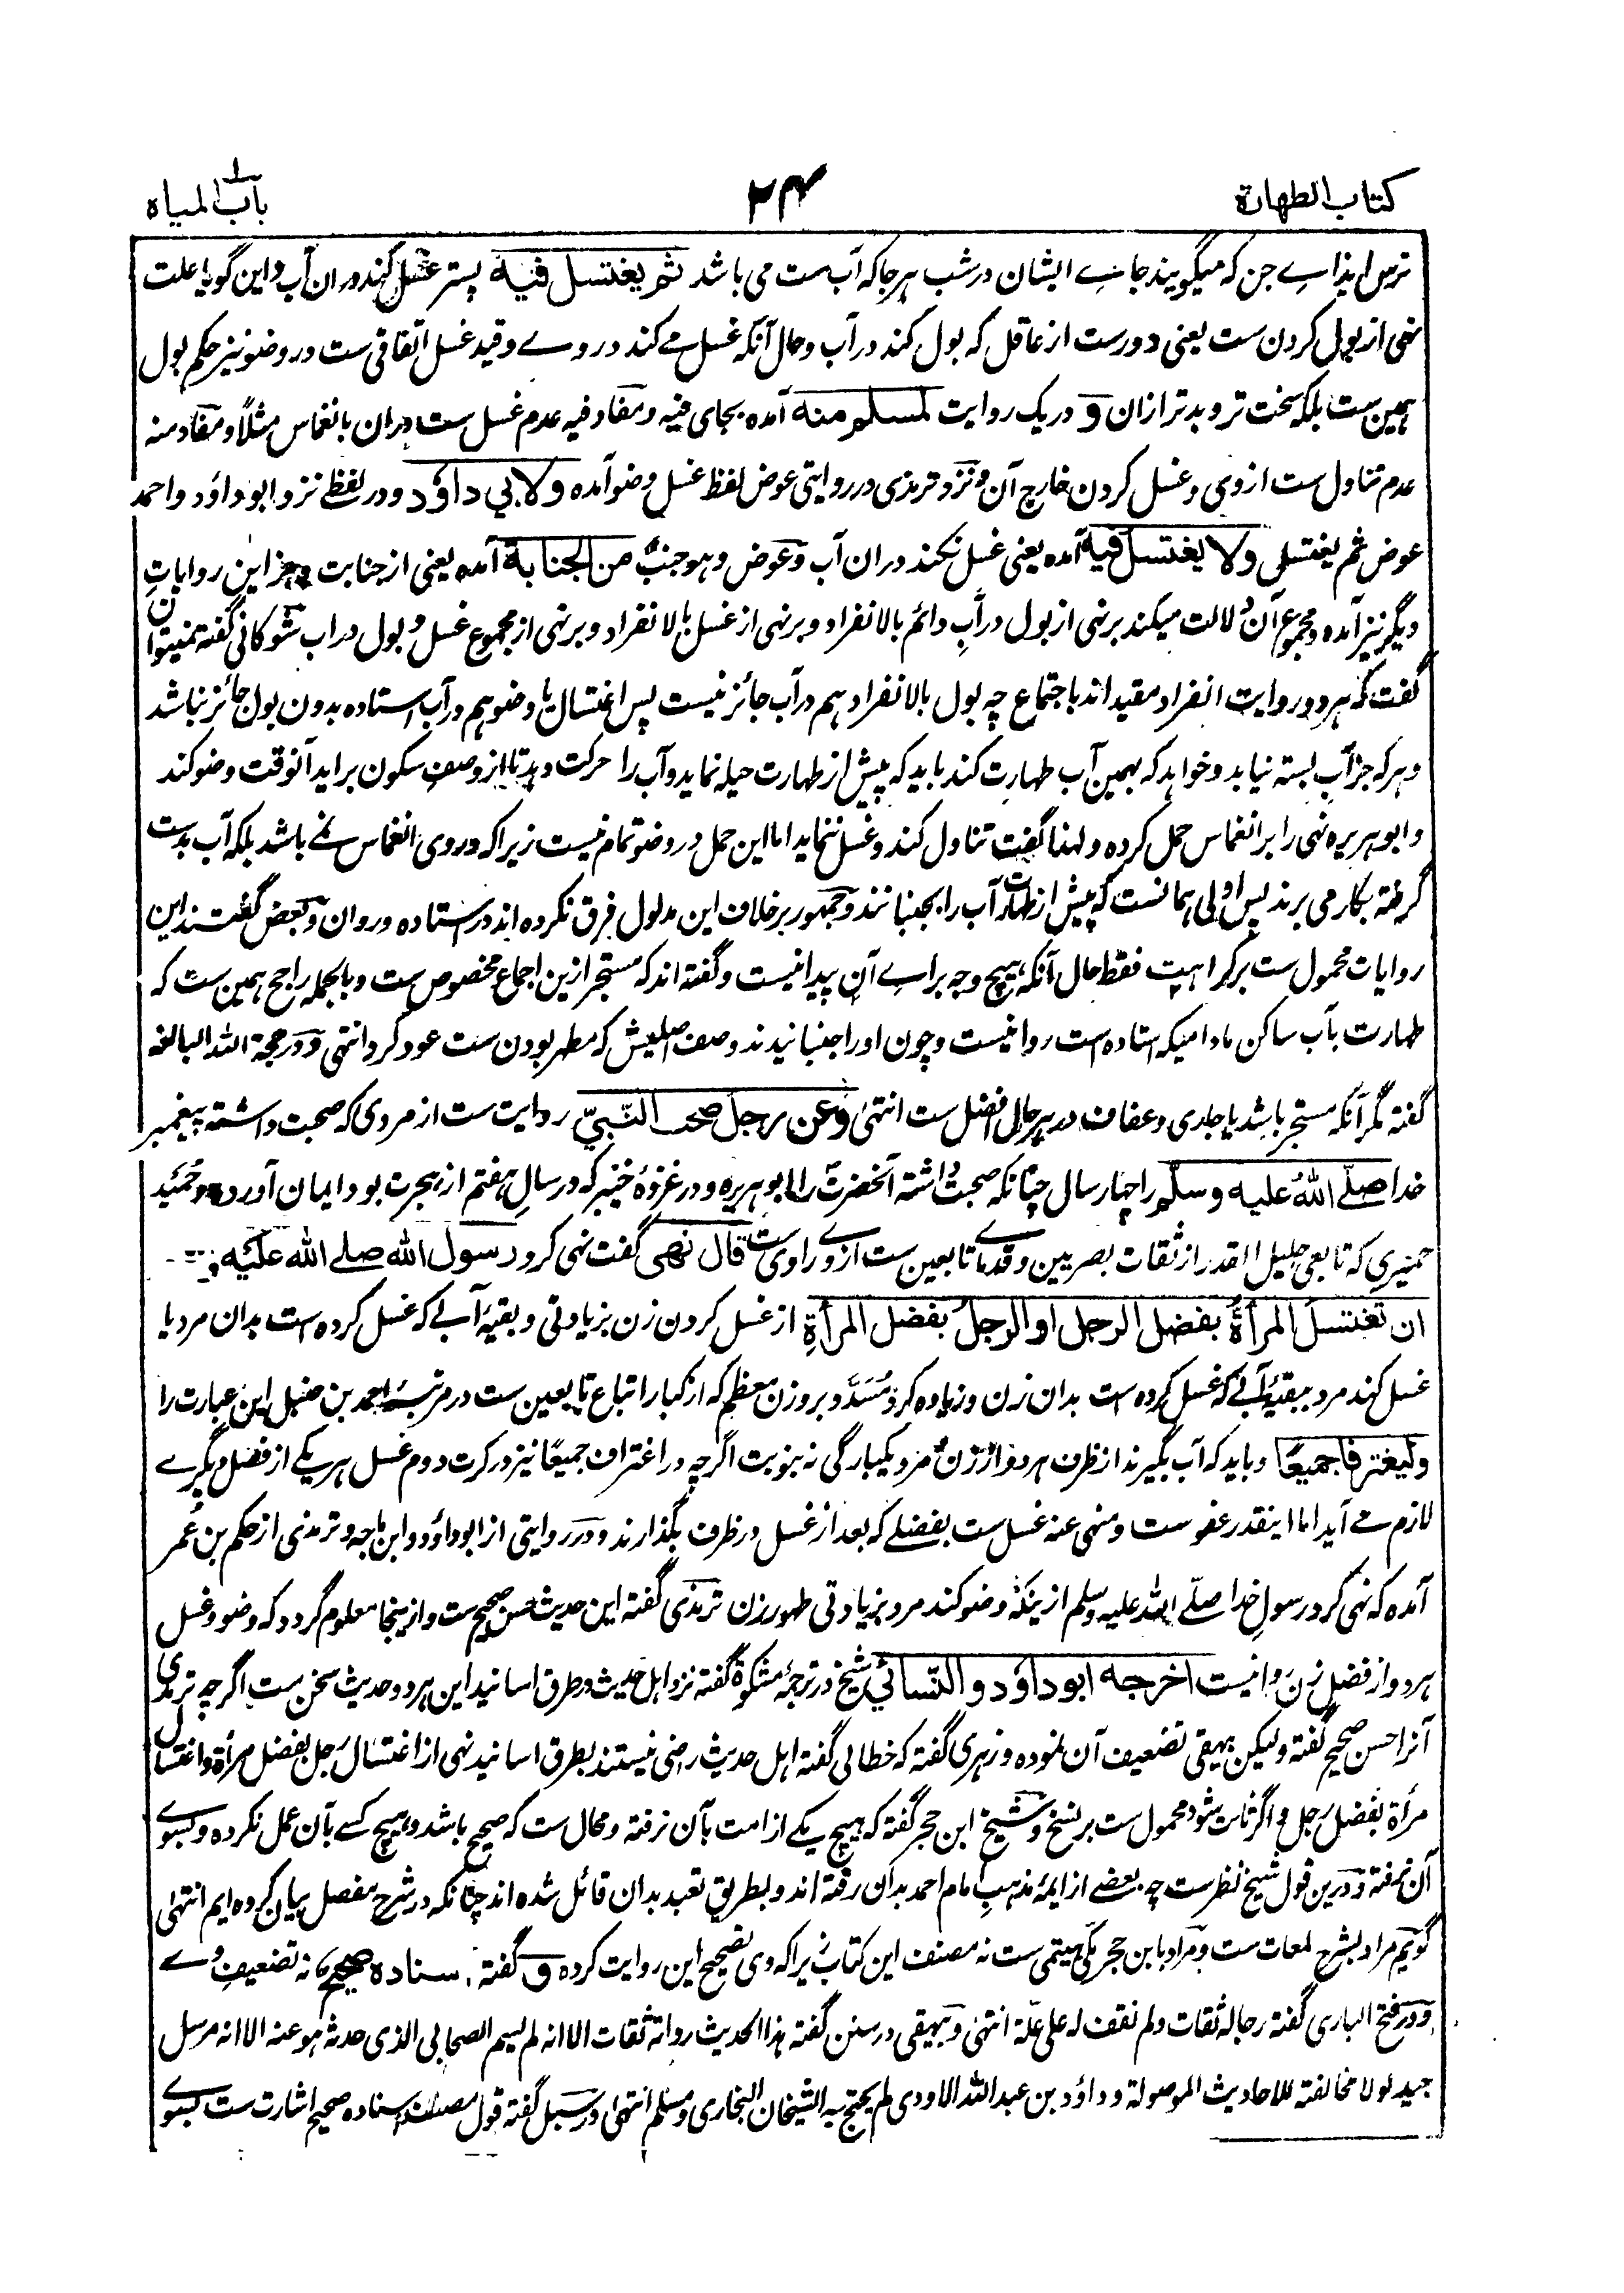 کتاب الطهارة
۲۴
باب المیاه
ترس ایذاے جن که میگویند جاے ایشان در شب هر جا که آب ست می باشد ثم یغتسل فیه پستر غسل کند دران آب و این گویا علت
نهی از بول کردن ست یعنی دورست از عاقل که بول کند در آب و حال آنکه غسل مے کند در وے و قید غسل اتفاقی ست در وضو نیز حکم بول
همین ست بلکه سخت تر و بدتر ازان و در یک روایت لمسلم منه آمده بجای فیه و مفاد فیه عدم غسل ست دران بانغماس مثلاً و مفاد منه
عدم تناول ست از وی و غسل کردن خارج آن و نزد ترمذی در روایتی عوض لفظ غسل وضو آمده ولابی داؤد و در لفظے نزد ابوداؤد و احمد
عوض ثم یغتسل ولا یغتسل فیه آمده یعنی غسل نکند دران آب و عوض و هو جنب من الجنابة آمده یعنی از جنابت و جز این روایاتِ
دیگر نیز آمده و مجموع آن دلالت میکند بر نهی از بول در آبِ دائم بالانفراد و بر نهی از غسل بالانفراد و بر نهی از مجموع غسل و بول در آب شوکانی گفته نمیتوان
گفت که هر دو روایت انفراد مقید اند باجتماع چه بول بالانفراد هم در آب جائز نیست پس اغتسال یا وضو هم در آب استاده بدون بول جائز نباشد
و هر که جز آب بسته نیابد و خواهد که بهمین آب طهارت کند باید که پیش از طهارت حیله نماید و آب را حرکت دهد تا از وصفِ سکون براید آنوقت وضو کند
و ابوهریره نهی را بر انغماس حمل کرده و لهذا گفت تناول کند و غسل ننماید اما این حمل در وضو تمام نیست زیراکه در وی انغماس نمے باشد بلکه آب بدست
گرفته بکار می برند پس اولی همانست که پیش از طهارت آب را بجنبانند و جمهور بر خلاف این مدلول فرق نکرده اند در استاده و روان و بعض گفتند این
روایات محمول ست بر کراهیت فقط حال آنکه هیچ وجه براے آن پیدا نیست و گفته اند که مستبحر ازین اجماع مخصوص ست و بالجمله راجح همین ست که
طهارت بآب ساکن مادامیکه استاده است روا نیست و چون او را جنبانیدند وصف اصلیش که مطهر بودن ست عود کرد انتهی و در حجة الله البالغه
گفته مگر آنکه مستبحر باشد یا جاری و عفاف در هر حال افضل ست انتهی و عن رجل صحب النّبیّ روایت ست از مردی که صحبت داشته پیغمبر
خدا صلّے الله علیه وسلّم را چهار سال چنانکه صحبت داشته آنحضرت را ابوهریره و در غزوۀ خیبر که در سالِ هفتم از هجرت بود ایمان آورده و حُمَید
حمیری که تابعی جلیل القدر از ثقات بصریین و قدماے تابعین ست از وے راوی ست قال نهی گفت نهی کرد رسول الله صلے الله علیه
ان تغتسل المرأةُ بفضل الرجل او الرجلُ بفضل المرأةِ از غسل کردن زن بزیادتی و بقیۀ آبے که غسل کرده است بدان مرد یا
غسل کند مرد ببقیۀ آبے که غسل کرده است بدان زن و زیاده کرد مُسَدَّد بر وزن معظم که از کبار اتباع تابعین ست در مرتبۀ احمد بن حنبل این عبارت را
ولیغترفا جمیعًا و باید که آب بگیرند از ظرف هر دو از زن و مرد یکبارگی نه بنوبت اگرچه در اغتراف جمیعًا نیز در کرت دوم غسل هر یکے از فضل دیگرے
لازم مے آید اما اینقدر عفوست و منهی عنه غسل ست بفضلے که بعد از غسل در ظرف بگذارند و در روایتی از ابوداؤد و ابن ماجه و ترمذی از حکم بن عُمر
آمده که نهی کرد رسولِ خدا صلّے الله علیه وسلم ازینکه وضو کند مرد بزیادتی طهور زن ترمذی گفته این حدیث حسن صحیح ست و ازینجا معلوم گردد که وضو و غسل
هر دو از فضلِ زن روا نیست اخرجه ابوداؤد والنّسائی شیخ در ترجمۀ مشکوة گفته نزد اهل حدیث در طرق اسانید این هر دو حدیث سخن ست اگرچه ترمذی
آنرا حسن صحیح گفته ولیکن بیهقی تضعیف آن نموده و زهری گفته که خطابی گفته اهل حدیث راضی نیستند بطرق اسانید نهی از اغتسال رجل بفضل مرأة و اغتسال
مرأة بفضل رجل و اگر ثابت شود محمول ست بر نسخ و شیخ ابن حجر گفته که هیچ یکے از امت بآن نرفته و محال ست که صحیح باشد و هیچ کسے بآن عمل نکرده و بسوے
آن نرفته و درین قول شیخ نظرست چه بعضے از ایمۀ مذهبِ امام احمد بدان رفته اند و بطریق تعبد بدان قائل شده اند چنانکه در شرح مفصل بیان کرده ایم انتهی
گویم مراد بشرح لمعات ست و مراد بابن حجر مکی هیتمی ست نه مصنف این کتاب زیراکه وی تصحیح این روایت کرده و گفته اسناده صحیح نه تضعیفِ وے
و در فتح الباری گفته رجاله ثقات ولم نقف له علی علّة انتهی و بیهقی در سنن گفته هذا الحدیث رواته ثقات الا انه لم یسم الصحابی الذی حدثه هو عنه الا انه مرسل
جید لولا مخالفته للاحادیث الموصولة و داؤد بن عبدالله الاودی لم یحتج به الشیخان البخاری و مسلم انتهی و در سبل گفته قول مصنف اسناده صحیح اشارت ست بسوے